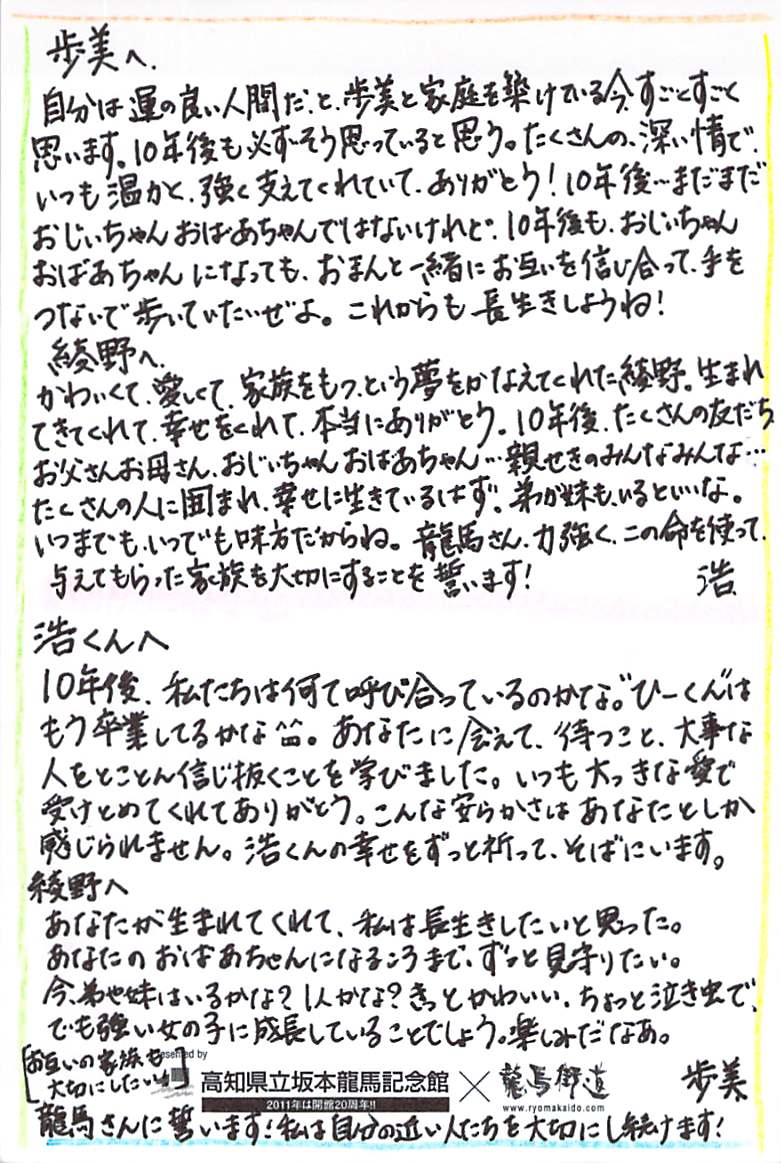 歩美へ.
自分は運の良い人間だ、と、歩美と家庭を築けている今、すごくすごく
思います。10年後も必ずそう思っていると思う。たくさんの、深い情で、
いつも温かく、強く支えてくれていて、ありがとう！10年後…まだまだ
おじぃちゃんおばあちゃんではないけれど、10年後も、おじぃちゃん
おばあちゃんになっても、おまんと一緒にお互いを信じ合って、手を
つないで歩いていたいぜよ。これからも長生きしようね！
綾野へ.
かわいくて、愛しくて、家族をもつ、という夢をかなえてくれた綾野。生まれ
てきてくれて、幸せをくれて、本当にありがとう。10年後、たくさんの友だち
お父さんお母さん、おじぃちゃんおばあちゃん…親せきのみんなみんな…
たくさんの人に囲まれ、幸せに生きているはず。弟か妹も、いるといいな。
いつまでも、いつでも味方だからね。龍馬さん、力強く、この命を使って、
与えてもらった家族を大切にすることを誓います！ 浩
浩くんへ
10年後、私たちは何て呼び合っているのかな。"ひーくん"は
もう卒業してるかな。あなたに会えて、待つこと、大事な
人をとことん信じ抜くことを学びました。いつも大っきな愛で
受けとめてくれてありがとう。こんな安らかさはあなたとしか
感じられません。浩くんの幸せをずっと祈って、そばにいます。
綾野へ
あなたが生まれてくれて、私は長生きしたいと思った。
あなたのおばあちゃんになるころまで、ずっと見守りたい。
今、弟や妹はいるかな？1人かな？きっとかわいい、ちょっと泣き虫で、
でも強い女の子に成長していることでしょう。楽しみだなあ。
[お互いの家族も
大切にしたい]
presented by
高知県立坂本龍馬記念館 × 龍馬街道
2011年は開館20周年!! www.ryomakaido.com
歩美
龍馬さんに誓います！私は自分の近い人たちを大切にし続けます！